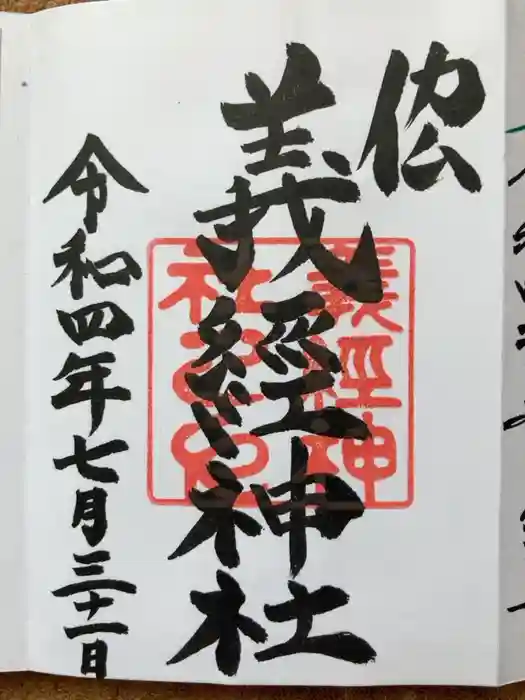 義經神社
令和四年七月三十一日
義經神
社之印